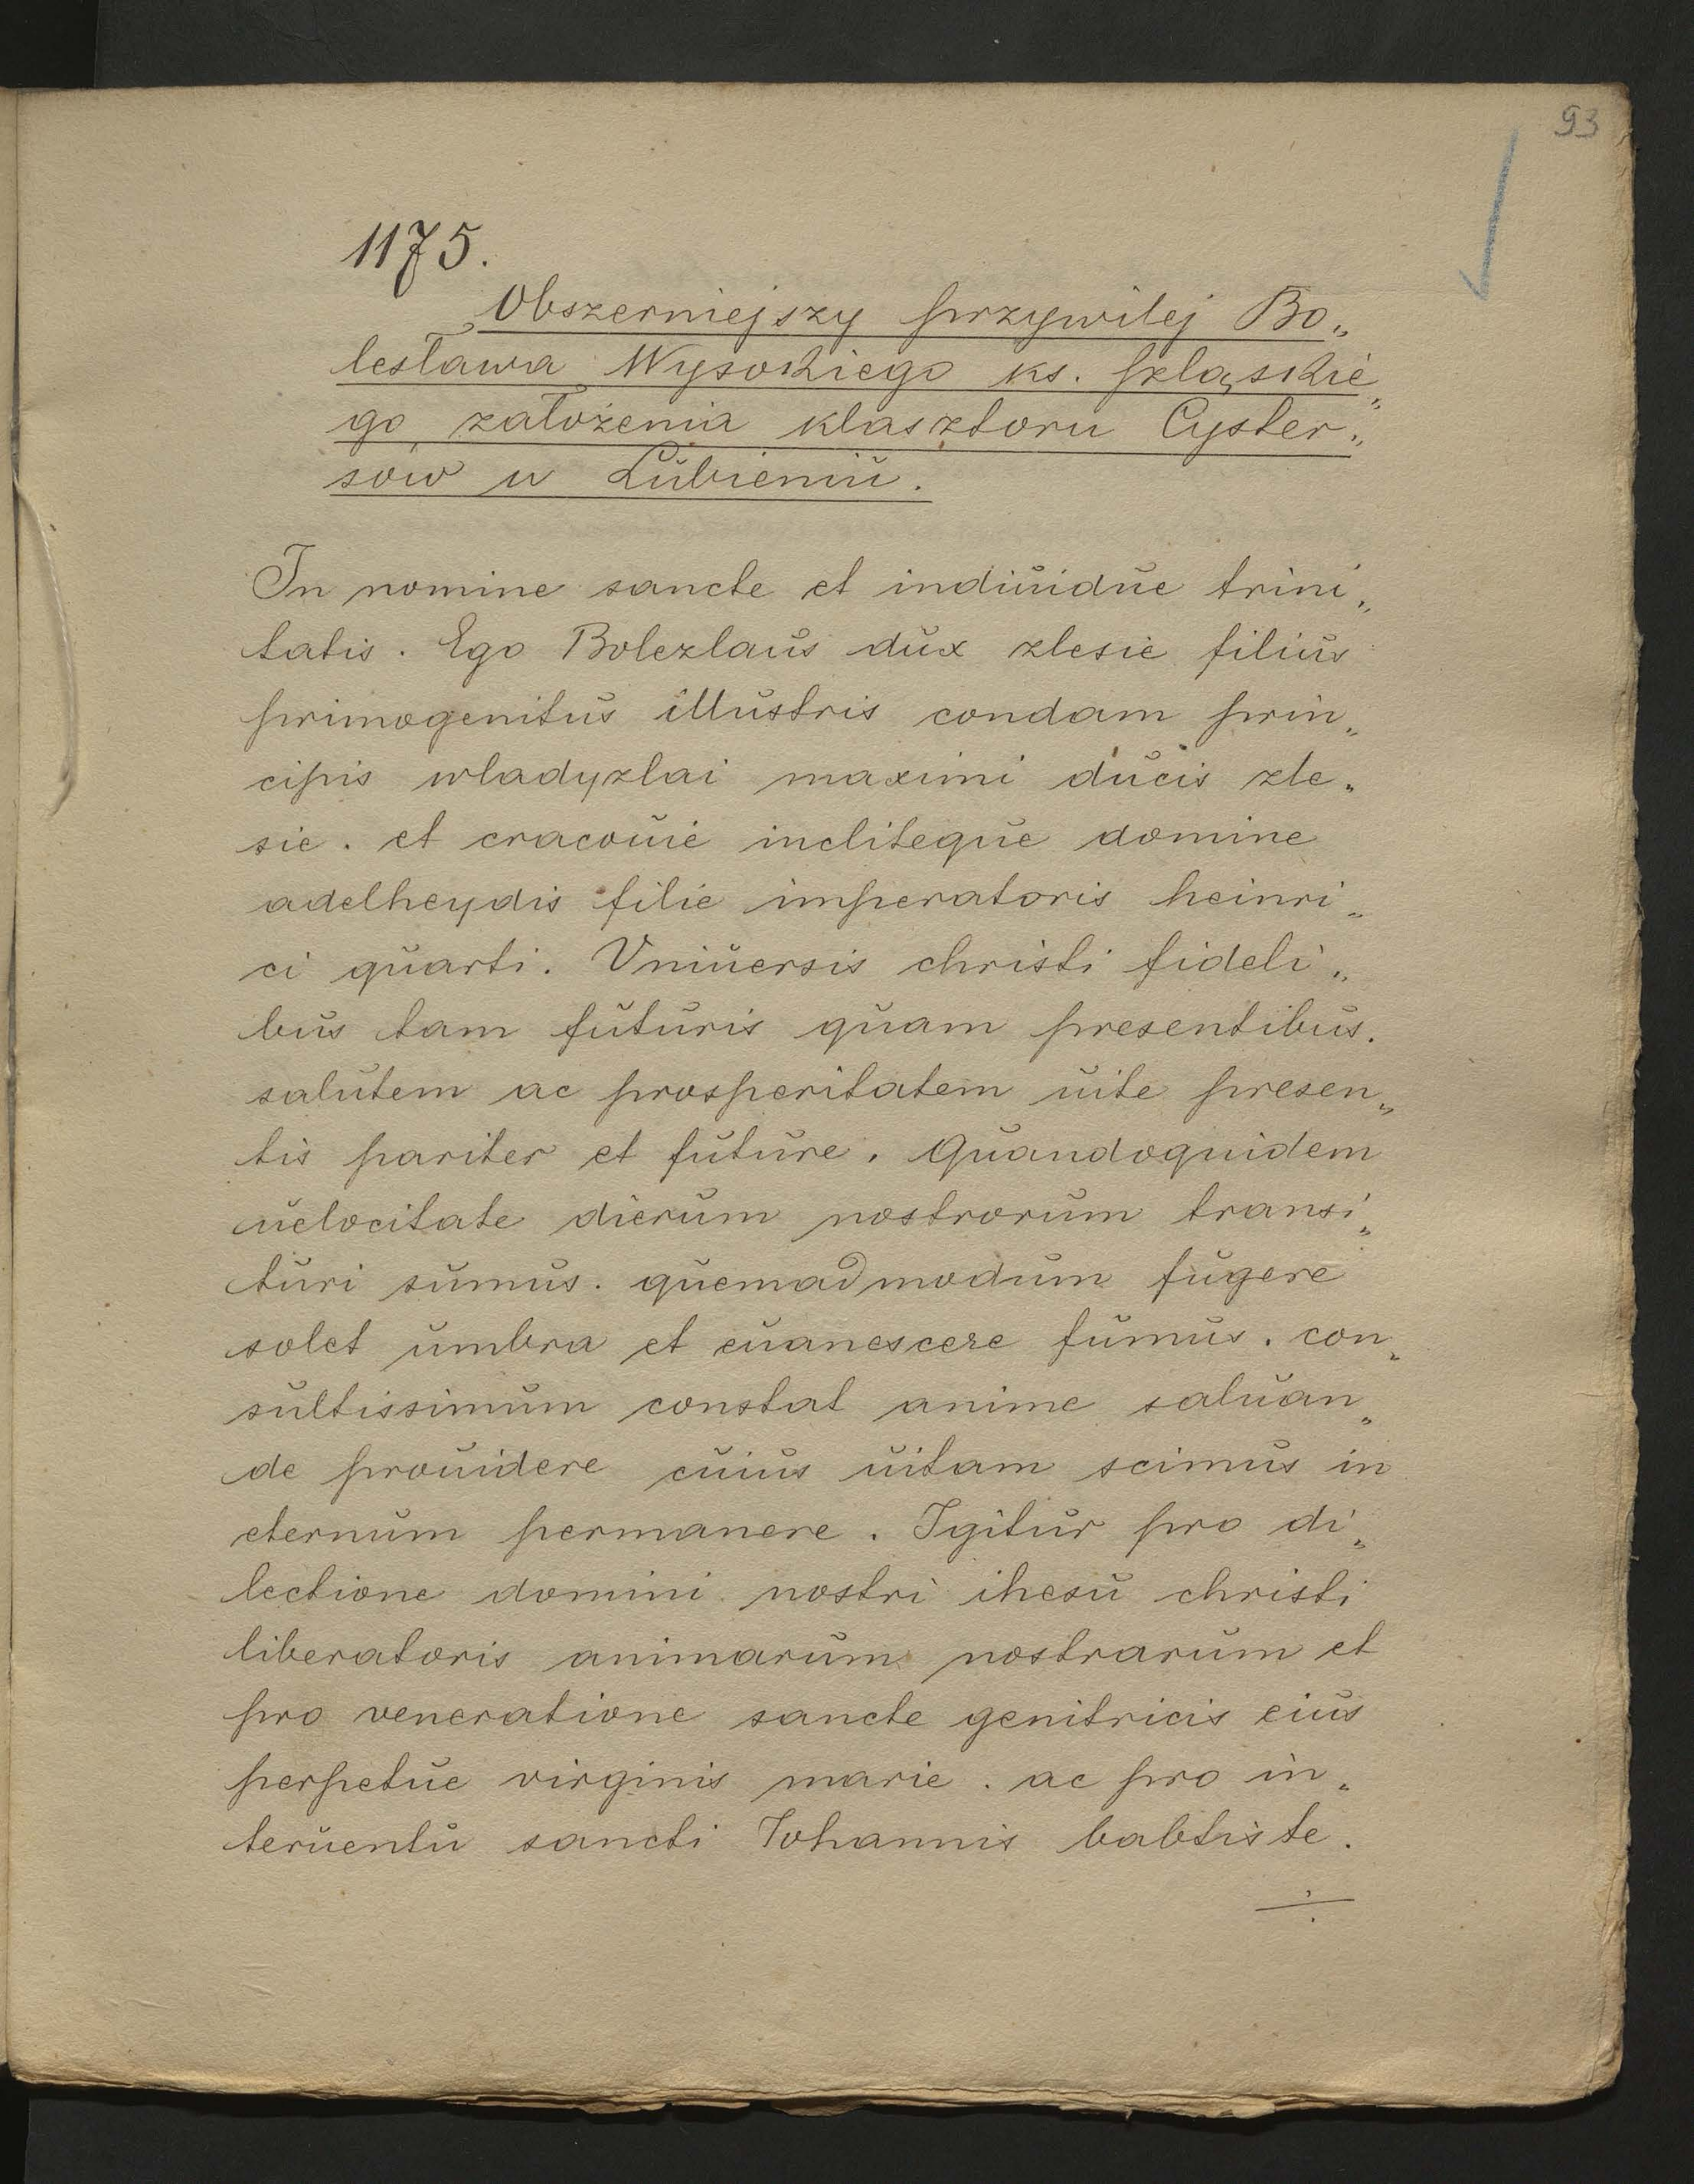 93
1175.
Obszerniejszy przywilej Bo„
lesława Wysokiego ks. szląskie„
go założenia klasztoru Cyster„
sów w Lubieniu.
In nomine sancte et indiuidue trini„
tatis. Ego Bolezlaus dux zlesie filius
primogenitus illustris condam prin„
cipis wladyzlai maximi ducis zle„
sie. et cracouie incliteque domine
adelheydis filie imperatoris heinri„
ci quarti. Vniuersis christi fideli„
bus tam futuris quam presentibus.
salutem ac prosperitatem uite presen„
tis pariter et future. Quandoquidem
uelocitate dierum nostrorum transi„
turi sumus. quemadmodum fugere
solet umbra et euanescere fumus. con„
sultissimum constat anime saluan„
de prouidere cuius uitam scimus in
eternum permanere. Igitur pro di„
lectione domini nostri ihesu christi
liberatoris animarum nostrarum et
pro veneratione sancte genitricis eius
perpetue virginis marie. ac pro in„
teruentu sancti Iohannis babtiste.